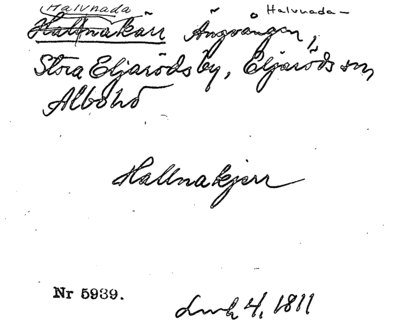 Halvnada Halvnada-
Hallnakärr Ängvången,
Stora Eljaröds by, Eljaröds sn
Albo hd
Hallnakjerr
Nr 5939.
Lmk 4, 1811